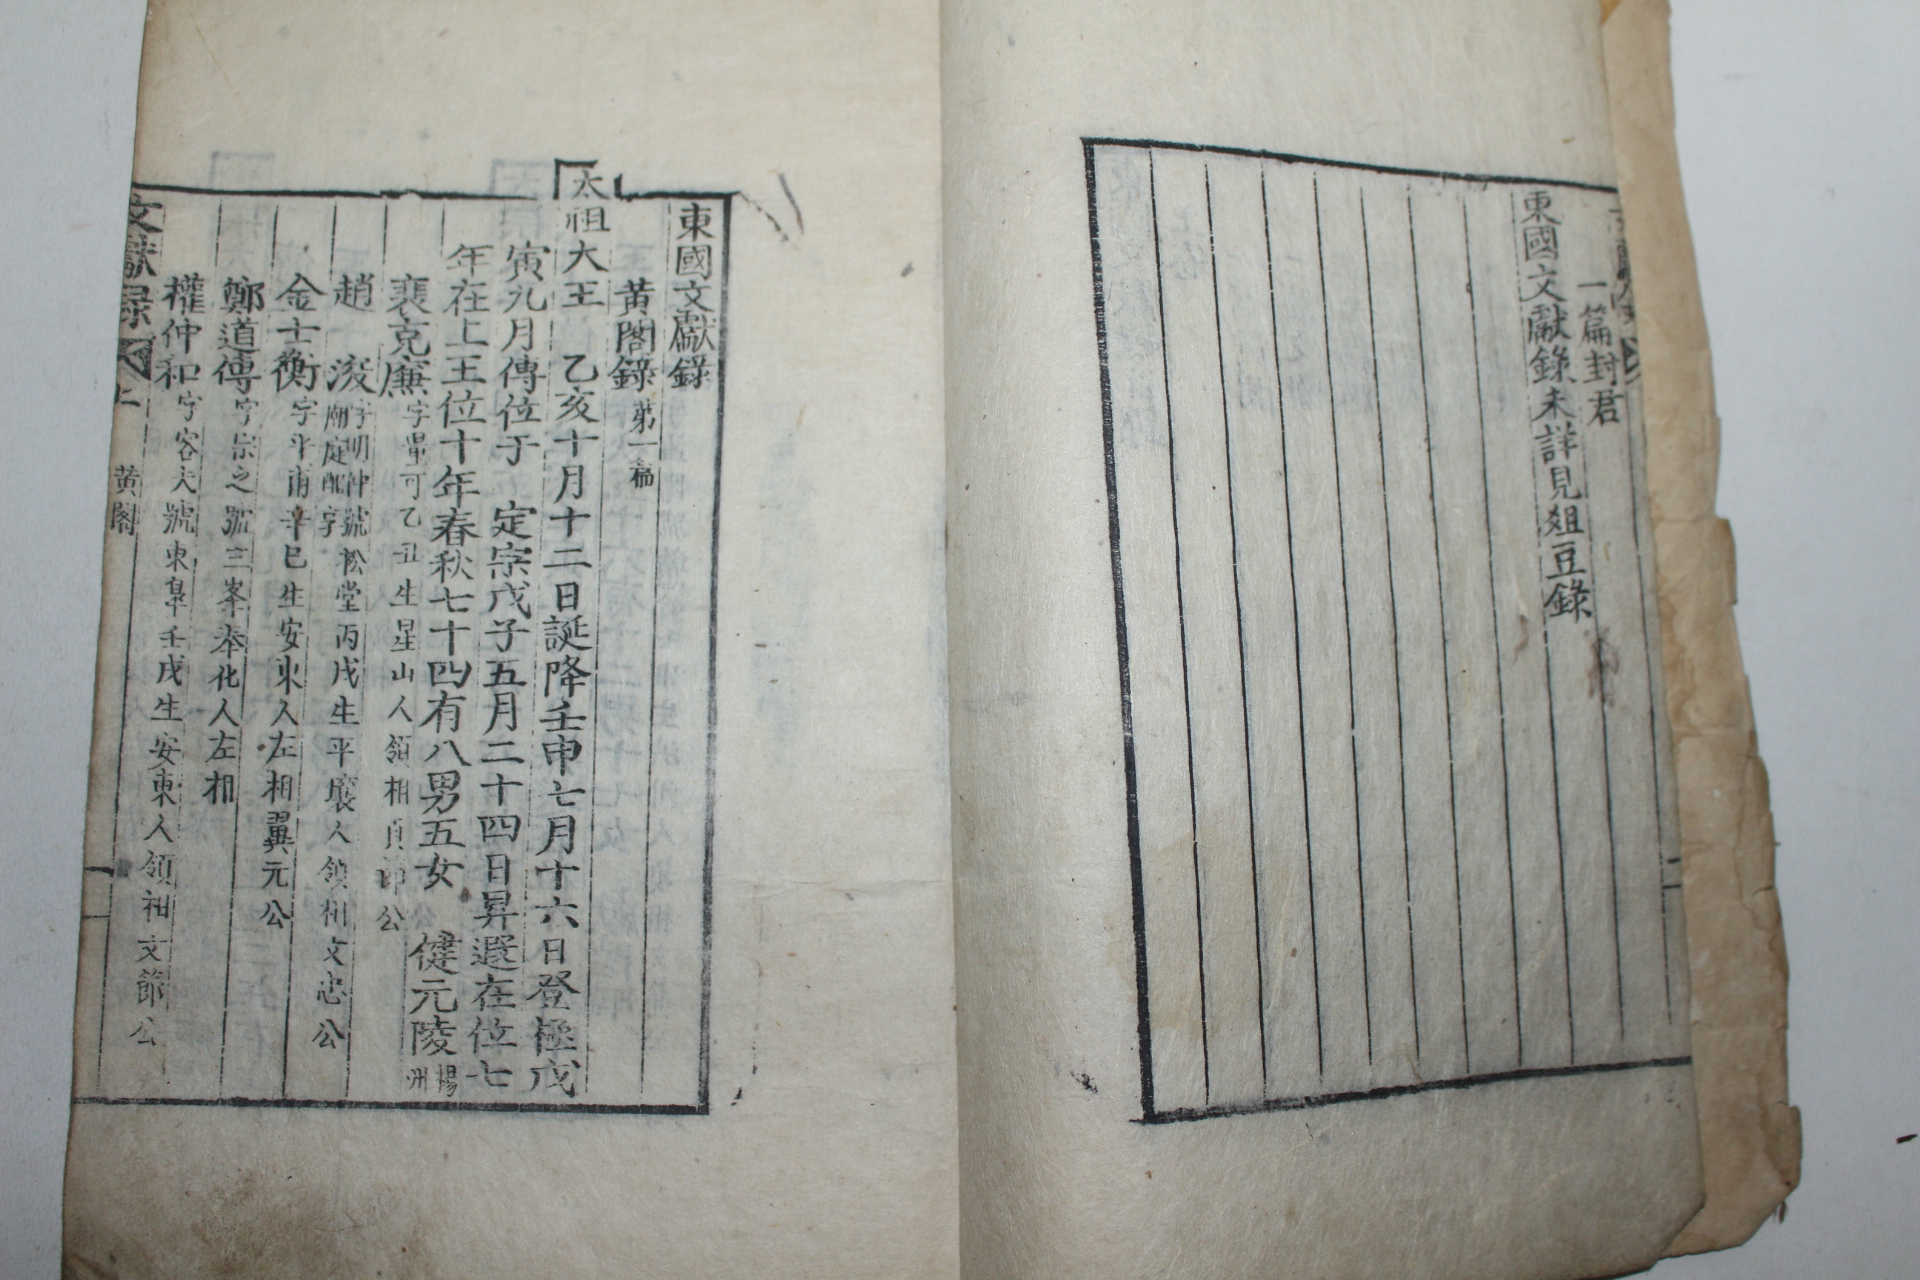 一篇封君
東國文獻錄未詳見俎豆錄
東國文獻錄
黃閣錄第一篇
太祖大王 乙亥十月十二日誕降壬申七月十六日登極戊
寅九月傳位于 定宗戊子五月二十四日昇遐在位七
年在上王位十年春秋七十四有八男五女 健元陵楊州
裵克廉字量可乙丑生星山人領相貞節公
趙浚字明仲號松堂丙戌生平壤人領相文忠公廟庭配享
金士衡字斗甫辛巳生安東人左相翼元公
鄭道傳字宗之號三峯奉化人左相
權仲和字容夫號東皐壬戌生安東人領相文節公
文獻录 上 黃閣 一